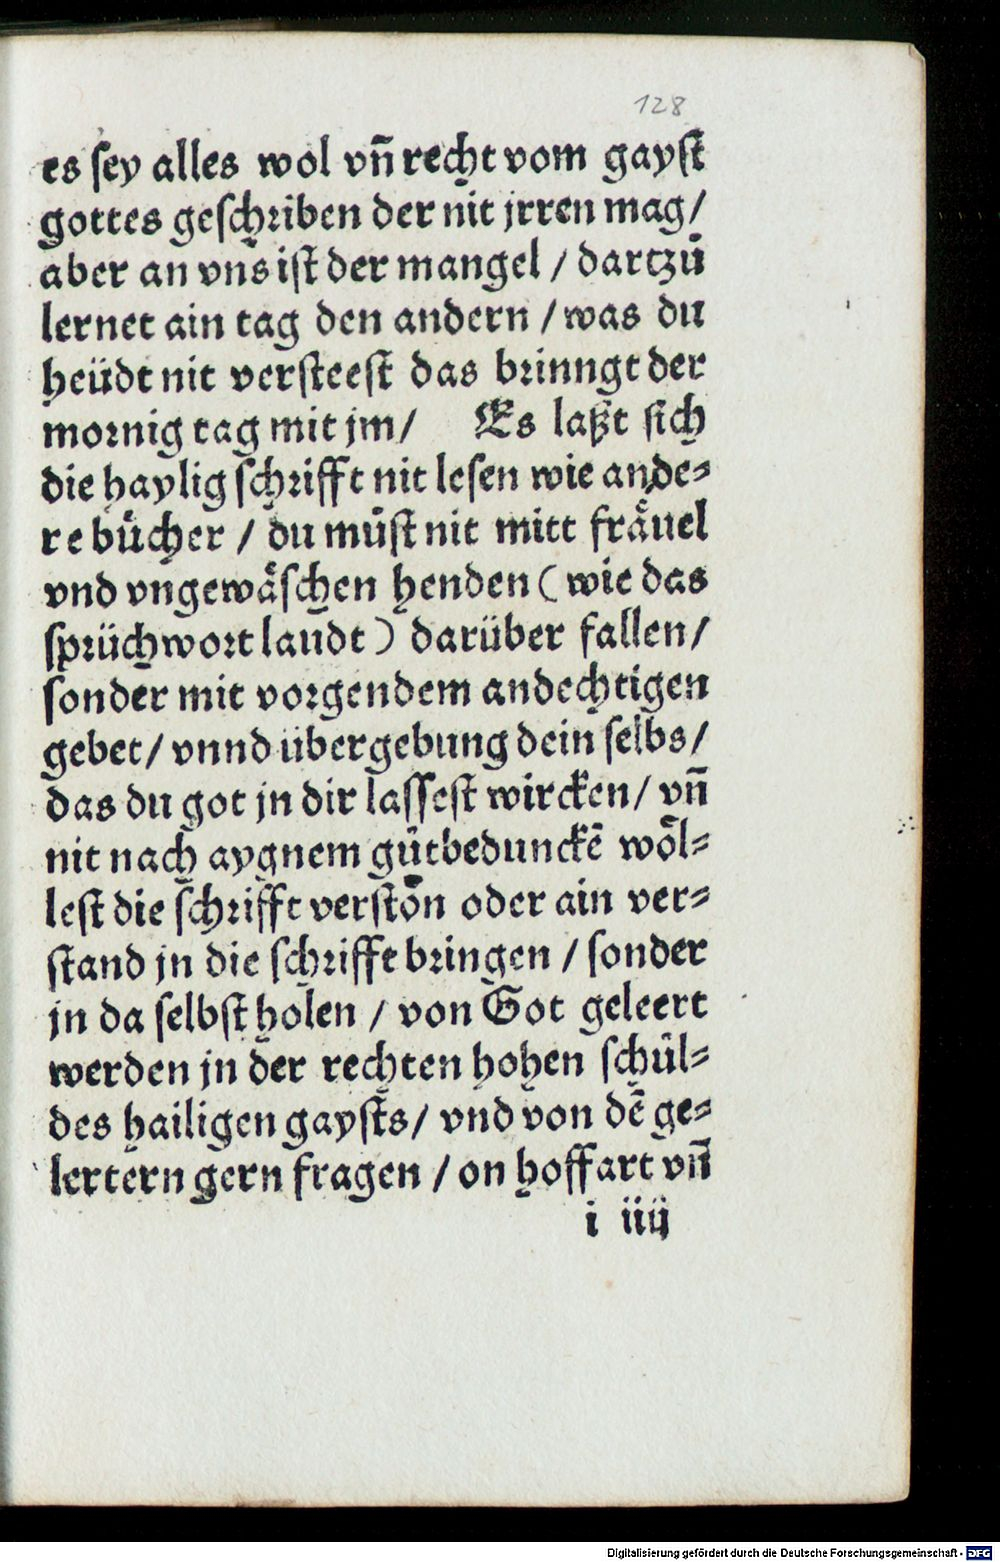 128
es sey alles wol vn̄ recht vom gayst
gottes geschriben der nit jrren mag/
aber an vns ist der mangel / dartzů
lernet ain tag den andern / was du
heüdt nit versteest das brinngt der
mornig tag mit jm/ Es laßt sich
die haylig schrifft nit lesen wie ande⸗
re bücher / du můst nit mitt fräuel
vnd vngewäschen henden ( wie das
sprüchwort laudt ) darüber fallen/
sonder mit vorgendem andechtigen
gebet/ vnnd übergebung dein selbs/
das du got jn dir lassest wircken/ vn̄
nit nach aygnem gůtbedunckē wöl⸗
lest die schrifft verstön oder ain ver⸗
stand jn die schrifft bringen / sonder
jn da selbst holen / von Got geleert
werden jn der rechten hohen schůl⸗
des hailigen gaysts/ vnd von dē ge⸗
lertern gern fragen / on hoffart vn̄
i iiij
Digitalisierung gefördert durch die Deutsche Forschungsgemeinschaft - DFG